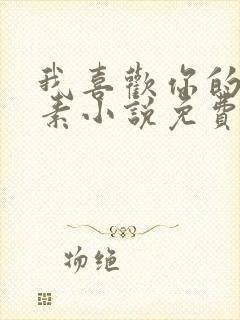 我喜歡你的
素小說免費
物绝